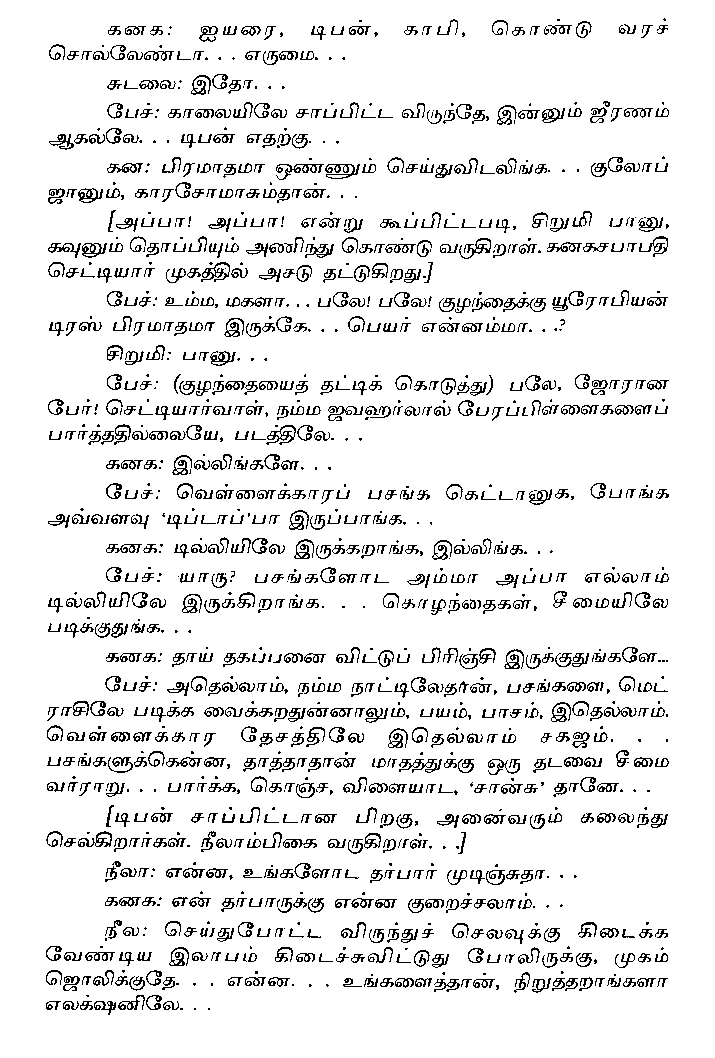 கனக: ஐயரை, டிபன், காபி, கொண்டு வரச்
சொல்லேண்டா. . . எருமை. . .
சுடலை: இதோ. . .
பேச்: காலையிலே சாப்பிட்ட விருந்தே, இன்னும் ஜீரணம்
ஆகல்லே. . . டிபன் எதற்கு. . .
கன: பிரமாதமா ஒண்ணும் செய்துவிடலிங்க. . . குலோப்
ஜானும், காரசோமாசும்தான். . .
[அப்பா! அப்பா! என்று கூப்பிட்டபடி, சிறுமி பானு,
கவுனும் தொப்பியும் அணிந்து கொண்டு வருகிறாள். கனகசபாபதி
செட்டியார் முகத்தில் அசடு தட்டுகிறது.]
பேச்: உம்ம, மகளா. . . பலே! பலே! குழந்தைக்கு யூரோபியன்
டிரஸ் பிரமாதமா இருக்கே. . . பெயர் என்னம்மா. . .?
சிறுமி: பானு. . .
பேச்: (குழந்தையைத் தட்டிக் கொடுத்து) பலே, ஜோரான
பேர்! செட்டியார்வாள், நம்ம ஜவஹர்லால் பேரப்பிள்ளைகளைப்
பார்த்ததில்லையே, படத்திலே. . .
கனக: இல்லிங்களே. . .
பேச்: வெள்ளைக்காரப் பசங்க கெட்டானுக, போங்க
அவ்வளவு ‘டிப்டாப்’பா இருப்பாங்க. . .
கனக: டில்லியிலே இருக்கறாங்க, இல்லிங்க. . .
பேச்: யாரு? பசங்களோட அம்மா அப்பா எல்லாம்
டில்லியிலே இருக்கிறாங்க. . . கொழந்தைகள், சீமையிலே
படிக்குதுங்க. . .
கனக: தாய் தகப்பனை விட்டுப் பிரிஞ்சி இருக்குதுங்களே...
பேச்: அதெல்லாம், நம்ம நாட்டிலேதான், பசங்களை, மெட்
ராசிலே படிக்க வைக்கறதுன்னாலும், பயம், பாசம், இதெல்லாம்.
வெள்ளைக்கார தேசத்திலே இதெல்லாம் சகஜம். . .
பசங்களுக்கென்ன, தாத்தாதான் மாதத்துக்கு ஒரு தடவை சீமை
வர்ராறு. . . பார்க்க, கொஞ்ச, விளையாட, ‘சான்சு’ தானே. . .
[டிபன் சாப்பிட்டான பிறகு, அனைவரும் கலைந்து
செல்கிறார்கள். நீலாம்பிகை வருகிறாள். . .]
நீலா: என்ன, உங்களோட தர்பார் முடிஞ்சுதா. . .
கனக: என் தர்பாருக்கு என்ன குறைச்சலாம். . .
நீல: செய்துபோட்ட விருந்துச் செலவுக்கு கிடைக்க
வேண்டிய இலாபம் கிடைச்சுவிட்டுது போலிருக்கு, முகம்
ஜொலிக்குதே. . . என்ன. . . உங்களைத்தான், நிறுத்தறாங்களா
எலக்ஷனிலே. . .